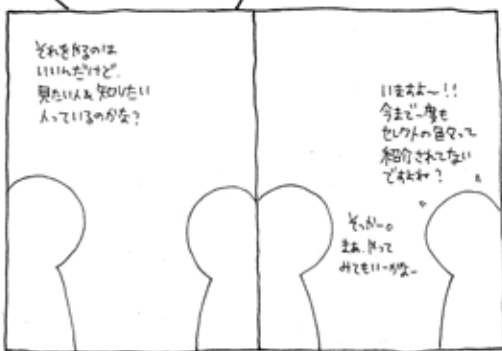 それをやるのは
いいんだけど、
見たい人&知りたい
人っているのかな?
いますよ〜!!
今まで一度も
セレクトの色々って
紹介されてない
ですよね?
そっかー。
まあ、やって
みてもいーかなー